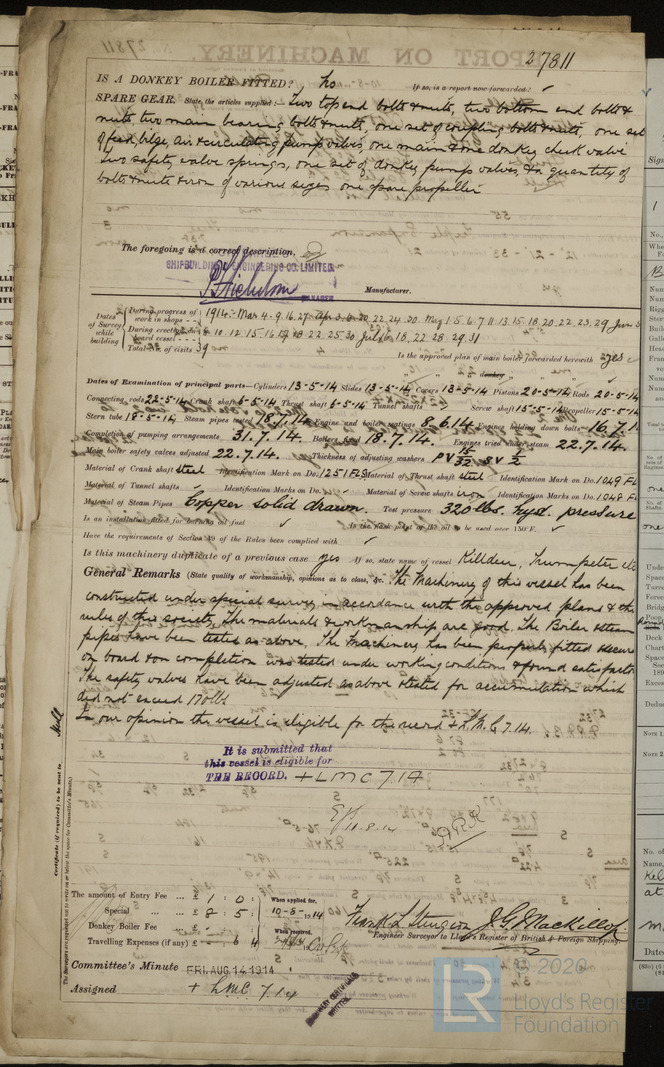 27811
IS A DONKEY BOILER FITTED? No If so, is a report now forwarded?
SPARE GEAR. State the articles supplied:— Two top end bolts & nuts, two bottom end bolts &
nuts two main bearing bolts & nuts, one set of coupling bolts & nuts, one set
of feed, bilge, air & circulating pump valves, one main & one donkey check valve
two safety valve springs, one set of donkey pump valves, & a quantity of
bolts & nuts & iron of various sizes one spare propeller
The foregoing is a correct description,
SHIPBUILDING & ENGINEERING CO. LIMITED.
Manufacturer.
MANAGER
Dates of Survey while building
During progress of work in shops - - 1914:- Mar 4. 9. 16. 27 Apr 3. 6. 20. 22. 24. 30. May 1. 5. 6. 7. 11. 13. 15. 18. 20. 22. 23. 29 Jun 5
During erection on board vessel - - - 8. 10. 12. 15. 16. 19. 22. 25. 30 July 16. 18. 22. 28. 29. 31
Total No. of visits 39
Is the approved plan of main boiler forwarded herewith yes
" " " donkey " " "
Dates of Examination of principal parts—Cylinders 13-5-14 Slides 13-5-14 Covers 13-5-14 Pistons 20-5-14 Rods 20-5-14
Connecting rods 22-5-14 Crank shaft 6-5-14 Thrust shaft 6-5-14 Tunnel shafts Screw shaft 15-5-14 Propeller 15-5-14
Stern tube 18-5-14 Steam pipes tested 18.7.14 Engine and boiler seatings 8.6.14 Engines holding down bolts 16.7.1
Completion of pumping arrangements 31.7.14. Boilers fixed 18.7.14. Engines tried under steam 22.7.14.
Main boiler safety valves adjusted 22.7.14. Thickness of adjusting washers PV 15/32 SV 1/2
Material of Crank shaft steel Identification Mark on Do. 1251 FLS Material of Thrust shaft steel Identification Mark on Do. 1049 FL
Material of Tunnel shafts Identification Marks on Do. Material of Screw shafts iron Identification Marks on Do. 1048 FL
Material of Steam Pipes Copper solid drawn. Test pressure 320 lbs. hyd. pressure
Is an installation fitted for burning oil fuel Is the flash point of the oil to be used over 150°F.
Have the requirements of Section 49 of the Rules been complied with
Is this machinery duplicate of a previous case yes If so, state name of vessel Killdeer, Trumpeter etc
General Remarks (State quality of workmanship, opinions as to class, &c. The Machinery of this vessel has been
constructed under special survey in accordance with the approved plans & the
rules of this society. The materials & workmanship are good. The Boiler & steam
pipes have been tested as above. The machinery has been properly fitted & secure
on board & on completion was tested under working conditions & found satisfactor
The safety valves have been adjusted as above stated for accumulation which
did not exceed 170 lbs
In our opinion the vessel is eligible for the record + L.M.C. 7.14.
It is submitted that
this vessel is eligible for
THE RECORD. + LMC 7.14
11.8.14
Certificate (if required) to be sent to Hull
The amount of Entry Fee ... £ 1 : 0 : When applied for,
Special ... ... £ 8 : 5 : 10-8-1914
Donkey Boiler Fee ... £ - When received,
Travelling Expenses (if any) £ - 6. 4
Frank L Sturgeon J.G. Mackillop
Engineer Surveyor to Lloyd's Register of British & Foreign Shipping.
Committee's Minute FRI. AUG. 14. 1914
Assigned + LMC 7.14
MACHINERY CERTIFICATE
WRITTEN
© 2020
LR
Lloyd's Register
Foundation